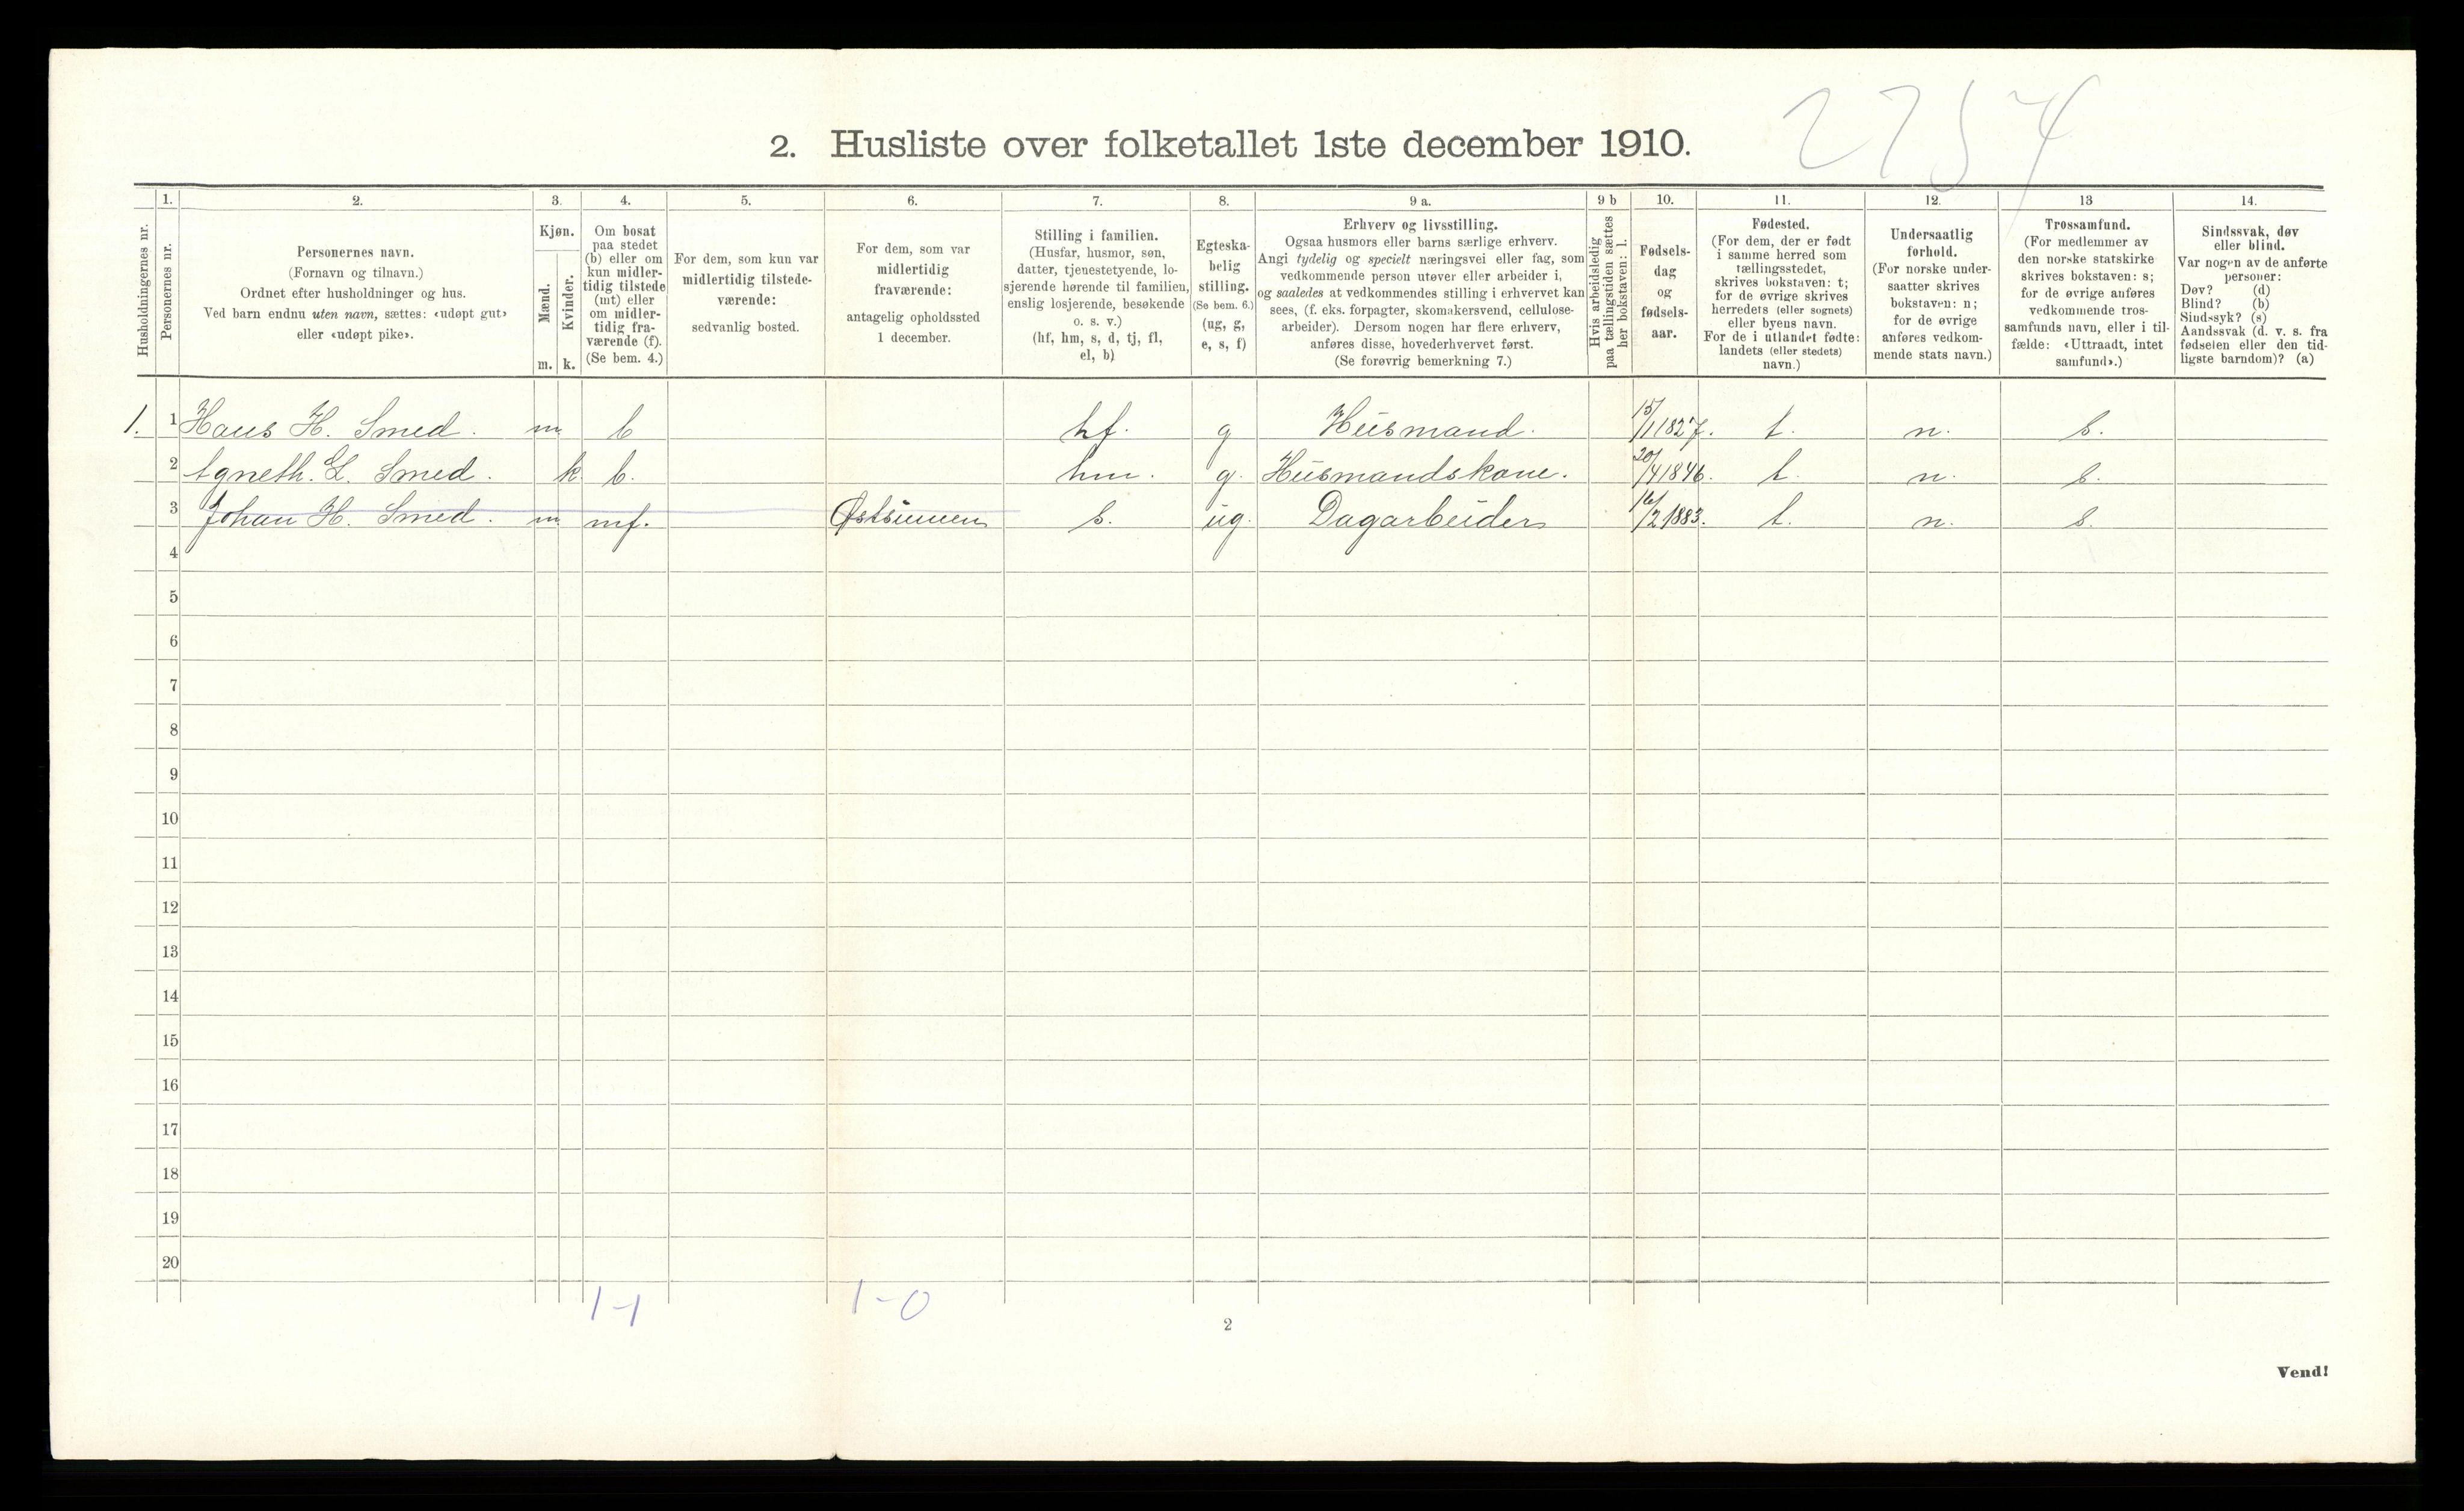 2757
2. Husliste over folketallet 1ste december 1910.
1. 2. 3. 4. 5. 6. 7. 8. 9 a. 9 b 10. 11. 12. 13 14.
Husholdningernes nr.
Personernes nr.
Personernes navn.
(Fornavn og tilnavn.)
Ordnet efter husholdninger og hus.
Ved barn endnu uten navn, sættes: «udøpt gut»
eller «udøpt pike».
Kjøn.
Mænd.
m.
Kvinder.
k.
Om bosat
paa stedet
(b) eller om
kun midler-
tidig tilstede
(mt) eller
om midler-
tidig fra-
værende (f).
(Se bem. 4.)
For dem, som kun var
midlertidig tilstede-
værende:
sedvanlig bosted.
For dem, som var
midlertidig
fraværende:
antagelig opholdssted
1 december.
Stilling i familien.
(Husfar, husmor, søn,
datter, tjenestetyende, lo-
sjerende hørende til familien,
enslig losjerende, besøkende
o. s. v.)
(hf, hm, s, d, tj, fl,
el, b)
Egteska-
belig
stilling.
(Se bem. 6.)
(ug, g,
e, s, f)
Erhverv og livsstilling.
Ogsaa husmors eller barns særlige erhverv.
Angi tydelig og specielt næringsvei eller fag, som
vedkommende person utøver eller arbeider i,
og saaledes at vedkommendes stilling i erhvervet kan
sees, (f. eks. forpagter, skomakersvend, cellulose-
arbeider). Dersom nogen har flere erhverv,
anføres disse, hovederhvervet først.
(Se forøvrig bemerkning 7.)
Hvis arbeidsledig
paa tællingstiden sættes
her bokstaven: l.
Fødsels-
dag
og
fødsels-
aar.
Fødested.
(For dem, der er født
i samme herred som
tællingsstedet,
skrives bokstaven: t;
for de øvrige skrives
herredets (eller sognets)
eller byens navn.
For de i utlandet fødte:
landets (eller stedets)
navn.)
Undersaatlig
forhold.
(For norske under-
saatter skrives
bokstaven: n;
for de øvrige
anføres vedkom-
mende stats navn.)
Trossamfund.
(For medlemmer av
den norske statskirke
skrives bokstaven: s;
for de øvrige anføres
vedkommende tros-
samfunds navn, eller i til-
fælde: «Uttraadt, intet
samfund».)
Sindssvak, døv
eller blind.
Var nogen av de anførte
personer:
Døv? (d)
Blind? (b)
Sindssyk? (s)
Aandssvak (d. v. s. fra
fødselen eller den tid-
ligste barndom)? (a)
1. 1 Hans H. Smed. m b hf. g Husmand. 15/1 1827. t. n. s.
2 Agneth. L. Smed. k. b. hm. g. Husmandskone. 20/4 1846. t. n. s.
3 Johan H. Smed. m mf. Østsinnen s. ug. Dagarbeider 16/2 1883. t. n. s.
4
5
6
7
8
9
10
11
12
13
14
15
16
17
18
19
20
1-1 1-0
2
Vend!